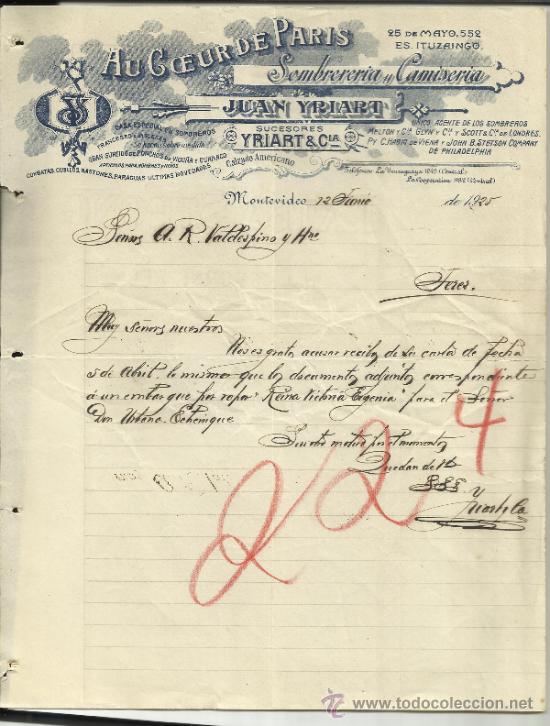 AU CŒUR DE PARIS
25 DE MAYO, 552
ES. ITUZAINGÓ.
Sombrereria y Camiseria
JUAN YRIART
SUCESORES
YRIART & Cia
Calzado Americano
CASA ESPECIAL EN SOMBREROS
FRANCESES É INGLESES
GRAN SURTIDO DE PONCHOS DE VICUÑA Y DURANGO
CORBATAS, CUELLOS, BASTONES, PARAGUAS ULTIMAS NOVEDADES
UNICO AGENTE DE LOS SOMBREROS
MELTON Y Cia GLYN Y Cia Y SCOTT & Cia DE LONDRES.
PY C. HABIG DE VIENA Y JOHN B. STETSON COMPANY
DE PHILADELPHIA
Teléfonos: La Uruguaya (Central)
La Cooperativa (Central)
Montevideo 12 Junio de 1925
Señores A. R. Valdespino y Hno
Jerez.
Muy Señores nuestros
Nos es grato acusar recibo de su carta de fecha
5 de Abril lo mismo que los documentos adjuntos correspondiente
á un embarque por vapor Reina Victoria Eugenia para el Señor
Don Urbano Echenique
Sin otro motivo por el momento
Quedan de Vd
S S S
Yriart y Ca
224
www.todocoleccion.net